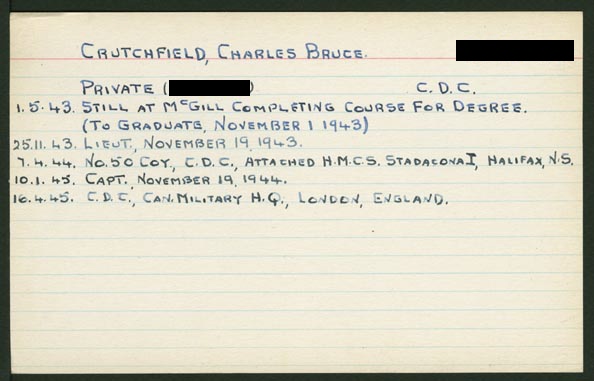 CRUTCHFIELD, CHARLES BRUCE.
PRIVATE ( ) C.D.C.
1.5.43. STILL AT McGILL COMPLETING COURSE FOR DEGREE.
(TO GRADUATE, NOVEMBER 1 1943)
25.11.43. LIEUT., NOVEMBER 19, 1943.
7.4.44. No.50 COY., C.D.C., ATTACHED H.M.C.S. STADACONA I, HALIFAX, N.S.
10.1.45. CAPT., NOVEMBER 19, 1944.
16.4.45. C.D.C., CAN. MILITARY H.Q., LONDON, ENGLAND.